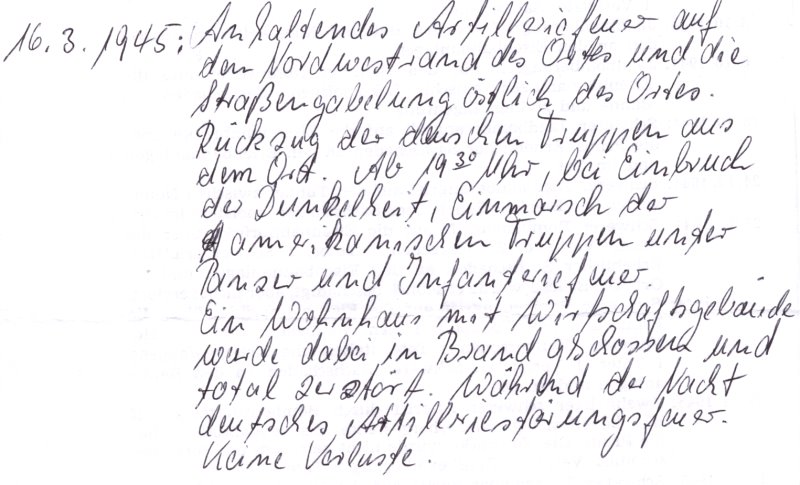 16.3.1945: Anhaltendes Artilleriefeuer auf
den Nordwestrand des Ortes und die
Straßengabelung östlich des Ortes.
Rückzug der deuschen Truppen aus
dem Ort. Ab 19 30 Uhr, bei Einbruch
der Dunkelheit, Einmarsch der
amerikanischen Truppen unter
Panzer und Infanteriefeuer.
Ein Wohnhaus mit Wirtschaftsgebäude
wurde dabei in Brand gschossen und
total zerstört. Während der Nacht
deutsches Artilleriestörungsfeuer.
Keine Verluste.